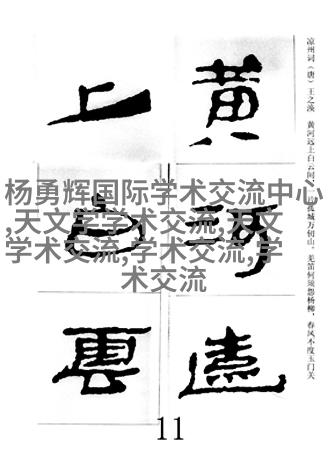 凉州词（唐）王之涣 黄河远上白云间，孤城万仞山。羌笛何须怨杨柳，春风不度玉门关
黄河遠
上白雲
杨勇辉国际学术交流中心
,天文学学术交流,天文
学术交流,学术交流,学
术交流
11